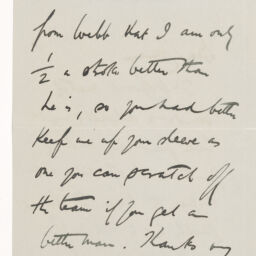 from Webb that I am only
1/2 a stroke better than
he is, so you had better
keep me up your sleeve as
one you can scratch off
the team if you get a
better man. Thanks very